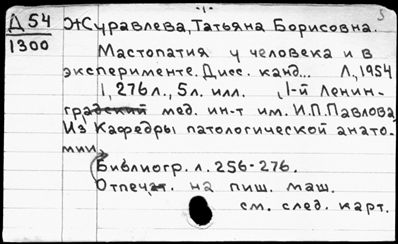 -1-
5
Д 54
1300
Журавлева, Татьяна Борисовна.
Мастопатия у человека и в
эксперименте. Дисс. канд... Л., 1954
1, 276 л., 5 л. илл. 1-й Ленин-
градский мед. ин-т им. И.П.Павлова.
Из кафедры патологической анато-
мии.
Библиогр. л. 256-276.
Отпечат. на пиш. маш.
см. след. карт.